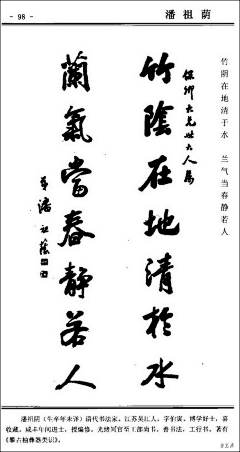 - 98 -
潘祖荫
竹阴在地清于水 兰气当春静若人
保卿大兄世大人属
竹陰在地清於水
蘭氣當春静若人
弟潘祖蔭
潘祖荫（生卒年未详）清代书法家。江苏吴江人，字伯寅。博学好士，喜
收藏，咸丰年间进士，授编修，光绪间官至工部尚书，善书法，工行书，著有
《攀古楼彝器类识》。